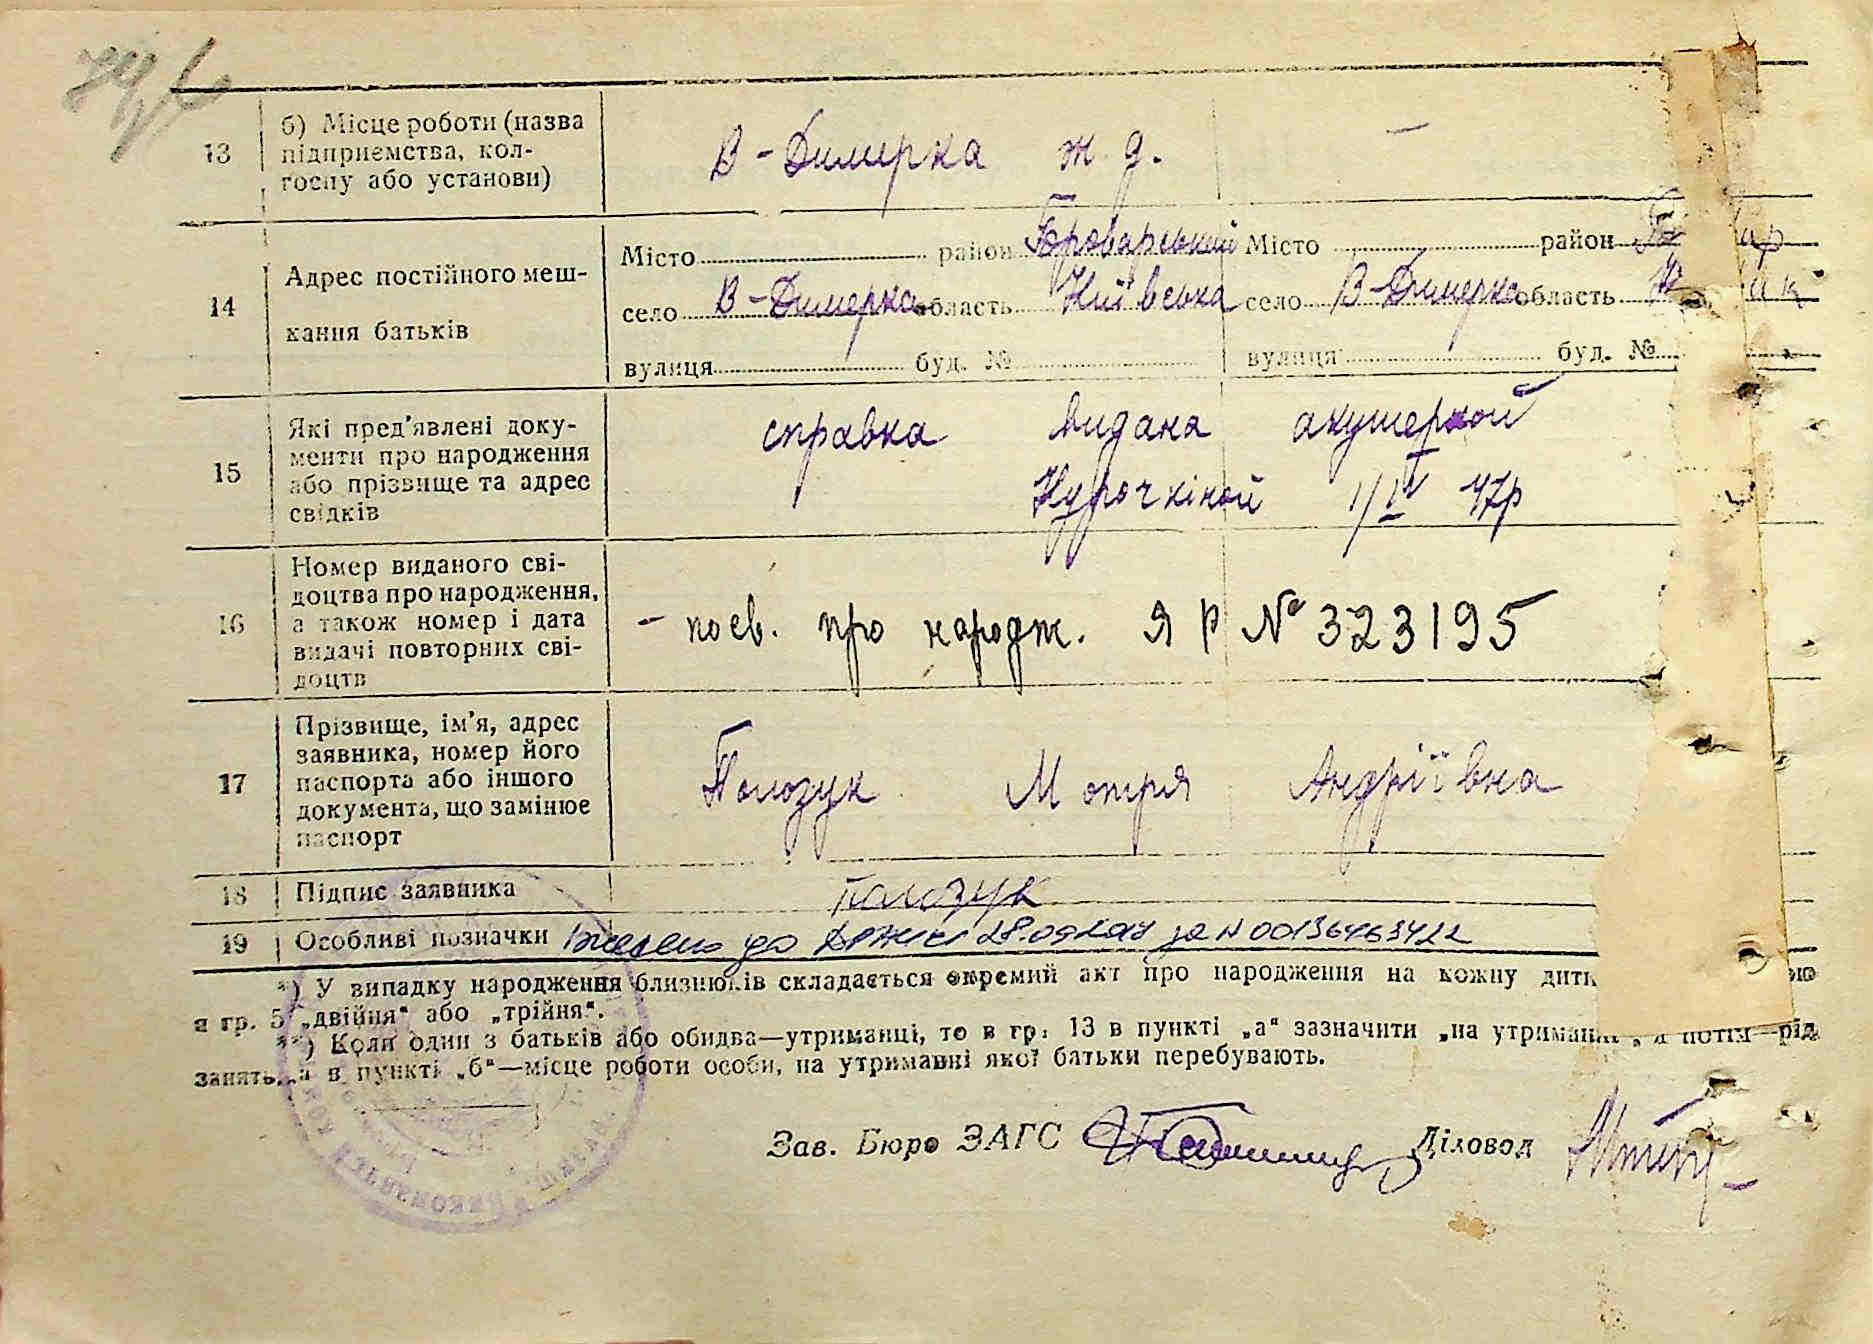 13 б) Місце роботи (назва підприємства, колгоспу або установи) В-Димерка ж. д. —
14 Адрес постійного мешкання батьків
Місто район Броварський Місто район
село В-Димерка область Київська село В-Димерка область
вулиця буд. № вулиця буд. №
15 Які пред'явлені документи про народження або прізвище та адрес свідків
справка видана акушеркой
Курочкіной 1/IV 47р
16 Номер виданого свідоцтва про народження, а також номер і дата видачі повторних свідоцтв
- посв. про народж. ЯР № 323195
17 Прізвище, ім'я, адрес заявника, номер його паспорта або іншого документа, що замінює паспорт
Полозук Мотря Андріївна
18 Підпис заявника Полозук
19 Особливі позначки Внесено до ДРАЦС 28.09.2017 за N 00136463422
*) У випадку народження близнюків складається окремий акт про народження на кожну
в гр. 5 „двійня“ або „трійня“.
**) Коли один з батьків або обидва—утриманці, то в гр. 13 в пункті „а“ зазначити „на а потім—рід
занять, а в пункті „б“—місце роботи особи, на утриманні якої батьки перебувають.
Зав. Бюро ЗАГС Діловод